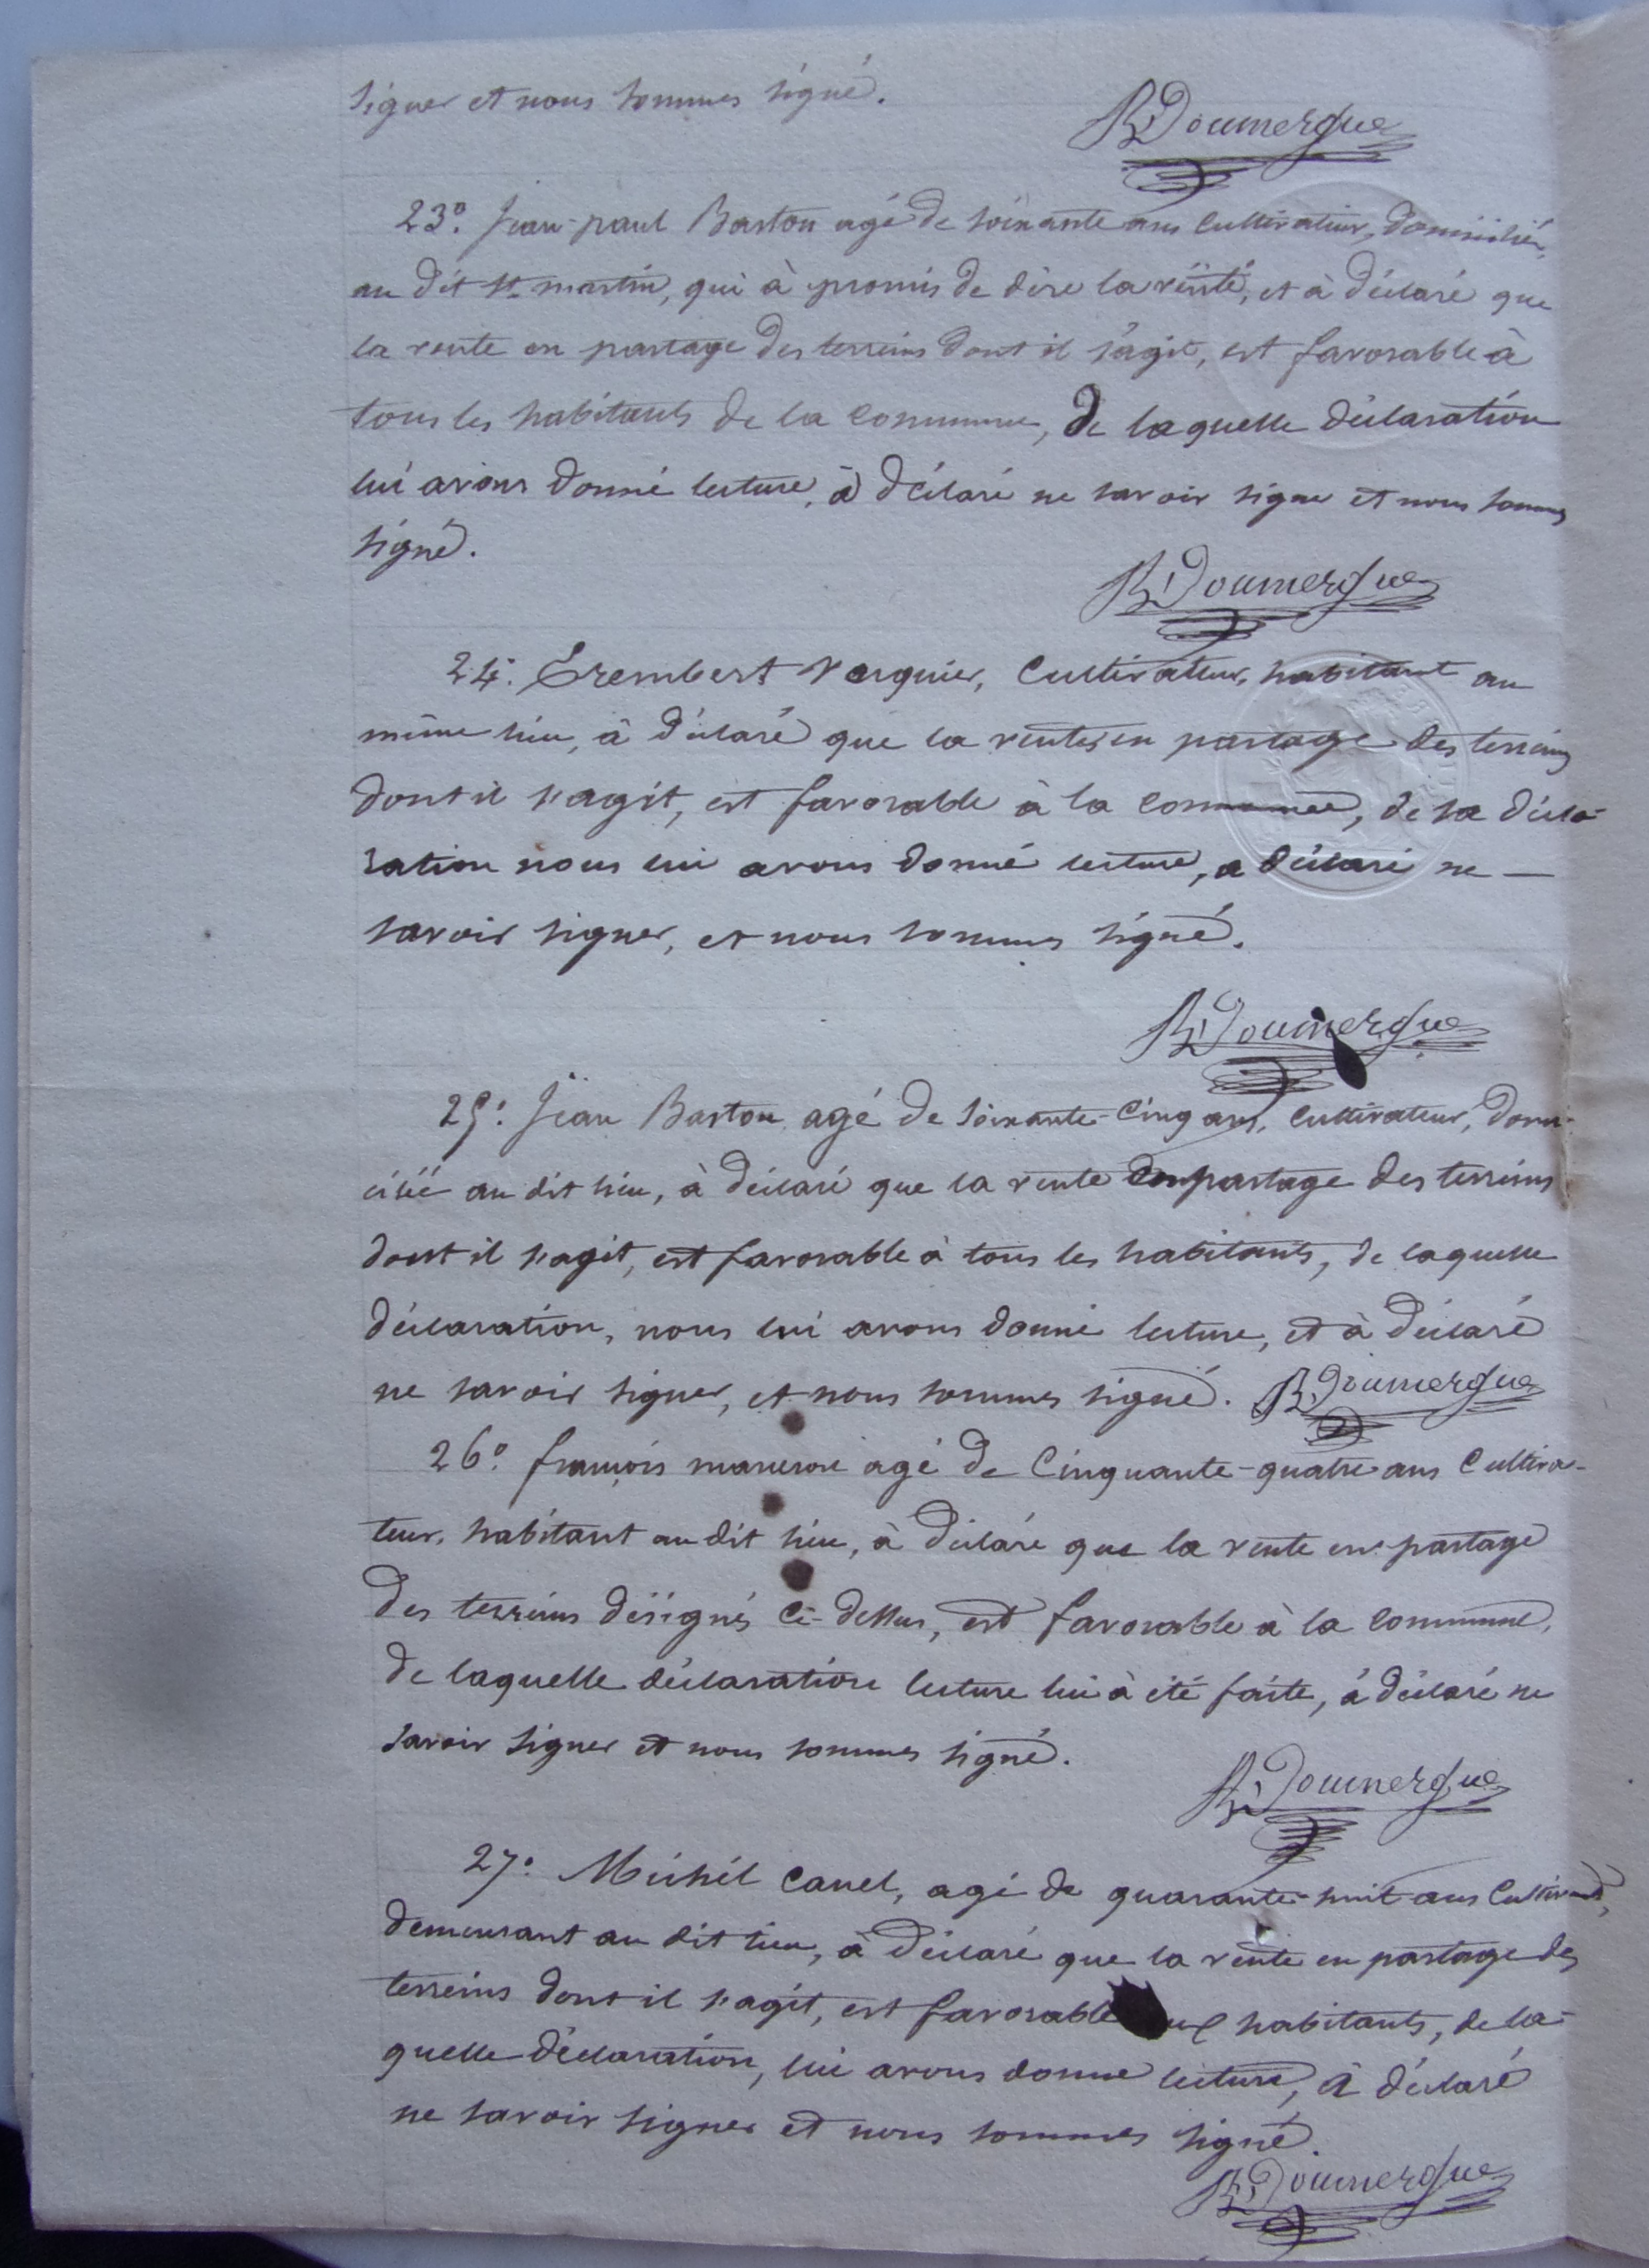 signer et nous sommes signé.
R Doumergue
23.° Jean-paul Barton agé de soixante ans cultivateur, domicilié
au dit St. martin, qui à promis de dire la vérité, et à déclaré que
la vente en partage des terreins dont il s'agit, est favorable à
tous les habitants de la commune, de laquelle déclaration
lui avons donné lecture, à déclaré ne savoir signer et nous sommes
signé.
R Doumergue
24.° Erembert Verguier, Cultivateur, habitant au
même lieu, à déclaré que la vente en partage des terreins
dont il s'agit, est favorable à la commune, de sa décla-
ration nous lui avons donné lecture, a déclaré ne —
savoir signer, et nous sommes signé.
R Doumergue
25.° Jean Barton agé de soixante-cinq ans, cultivateur, domi-
cilié au dit lieu, à déclaré que la vente en partage des terreins
dont il s'agit, est favorable à tous les habitants, de laquelle
déclaration, nous lui avons donné lecture, et à déclaré
ne savoir signer, et nous sommes signé. R Doumergue
26.° françois agé de Cinquante-quatre ans Cultiva-
teur, habitant au dit lieu, à déclaré que la vente en partage
des terreins désignés ci-dessus, est favorable à la commune,
de laquelle déclaration lecture lui à été faite, à déclaré ne
savoir signer et nous sommes signé.
R Doumergue
27.° Michél Canel, agé de quarante-huit ans Cultivateur,
demeurant au dit lieu, à déclaré que la vente en partage des
terreins dont il s'agit, est favorable aux habitants, de la-
quelle déclaration, lui avons donné lecture, à déclaré
ne savoir signer et nous sommes signé.
R Doumergue